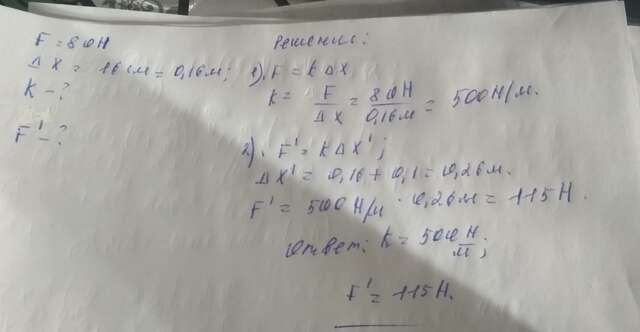 F = 80Н
Δx = 16 см = 0,16м;
K - ?
F' - ?
Решение:
1). F = KΔx
K = F/Δx = 80Н/0,16м = 500Н/м.
2). F' = KΔx';
Δx' = 0,16 + 0,1 = 0,26м.
F' = 500Н/м · 0,26м = 115Н.
Ответ: K = 500 Н/м;
F' = 115Н.